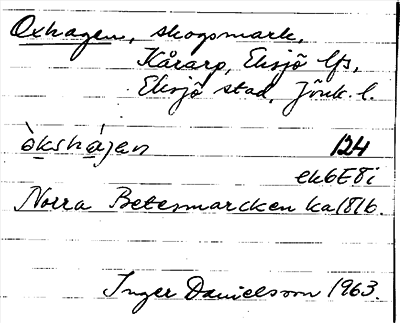 Oxhagen, skogsmark,
Kårarp, Eksjö lfs,
Eksjö stad, Jönk. l.
òkshájen 124
ek6E8i
Norra Betesmarcken ka 1816.
Inger Danielsson 1963.